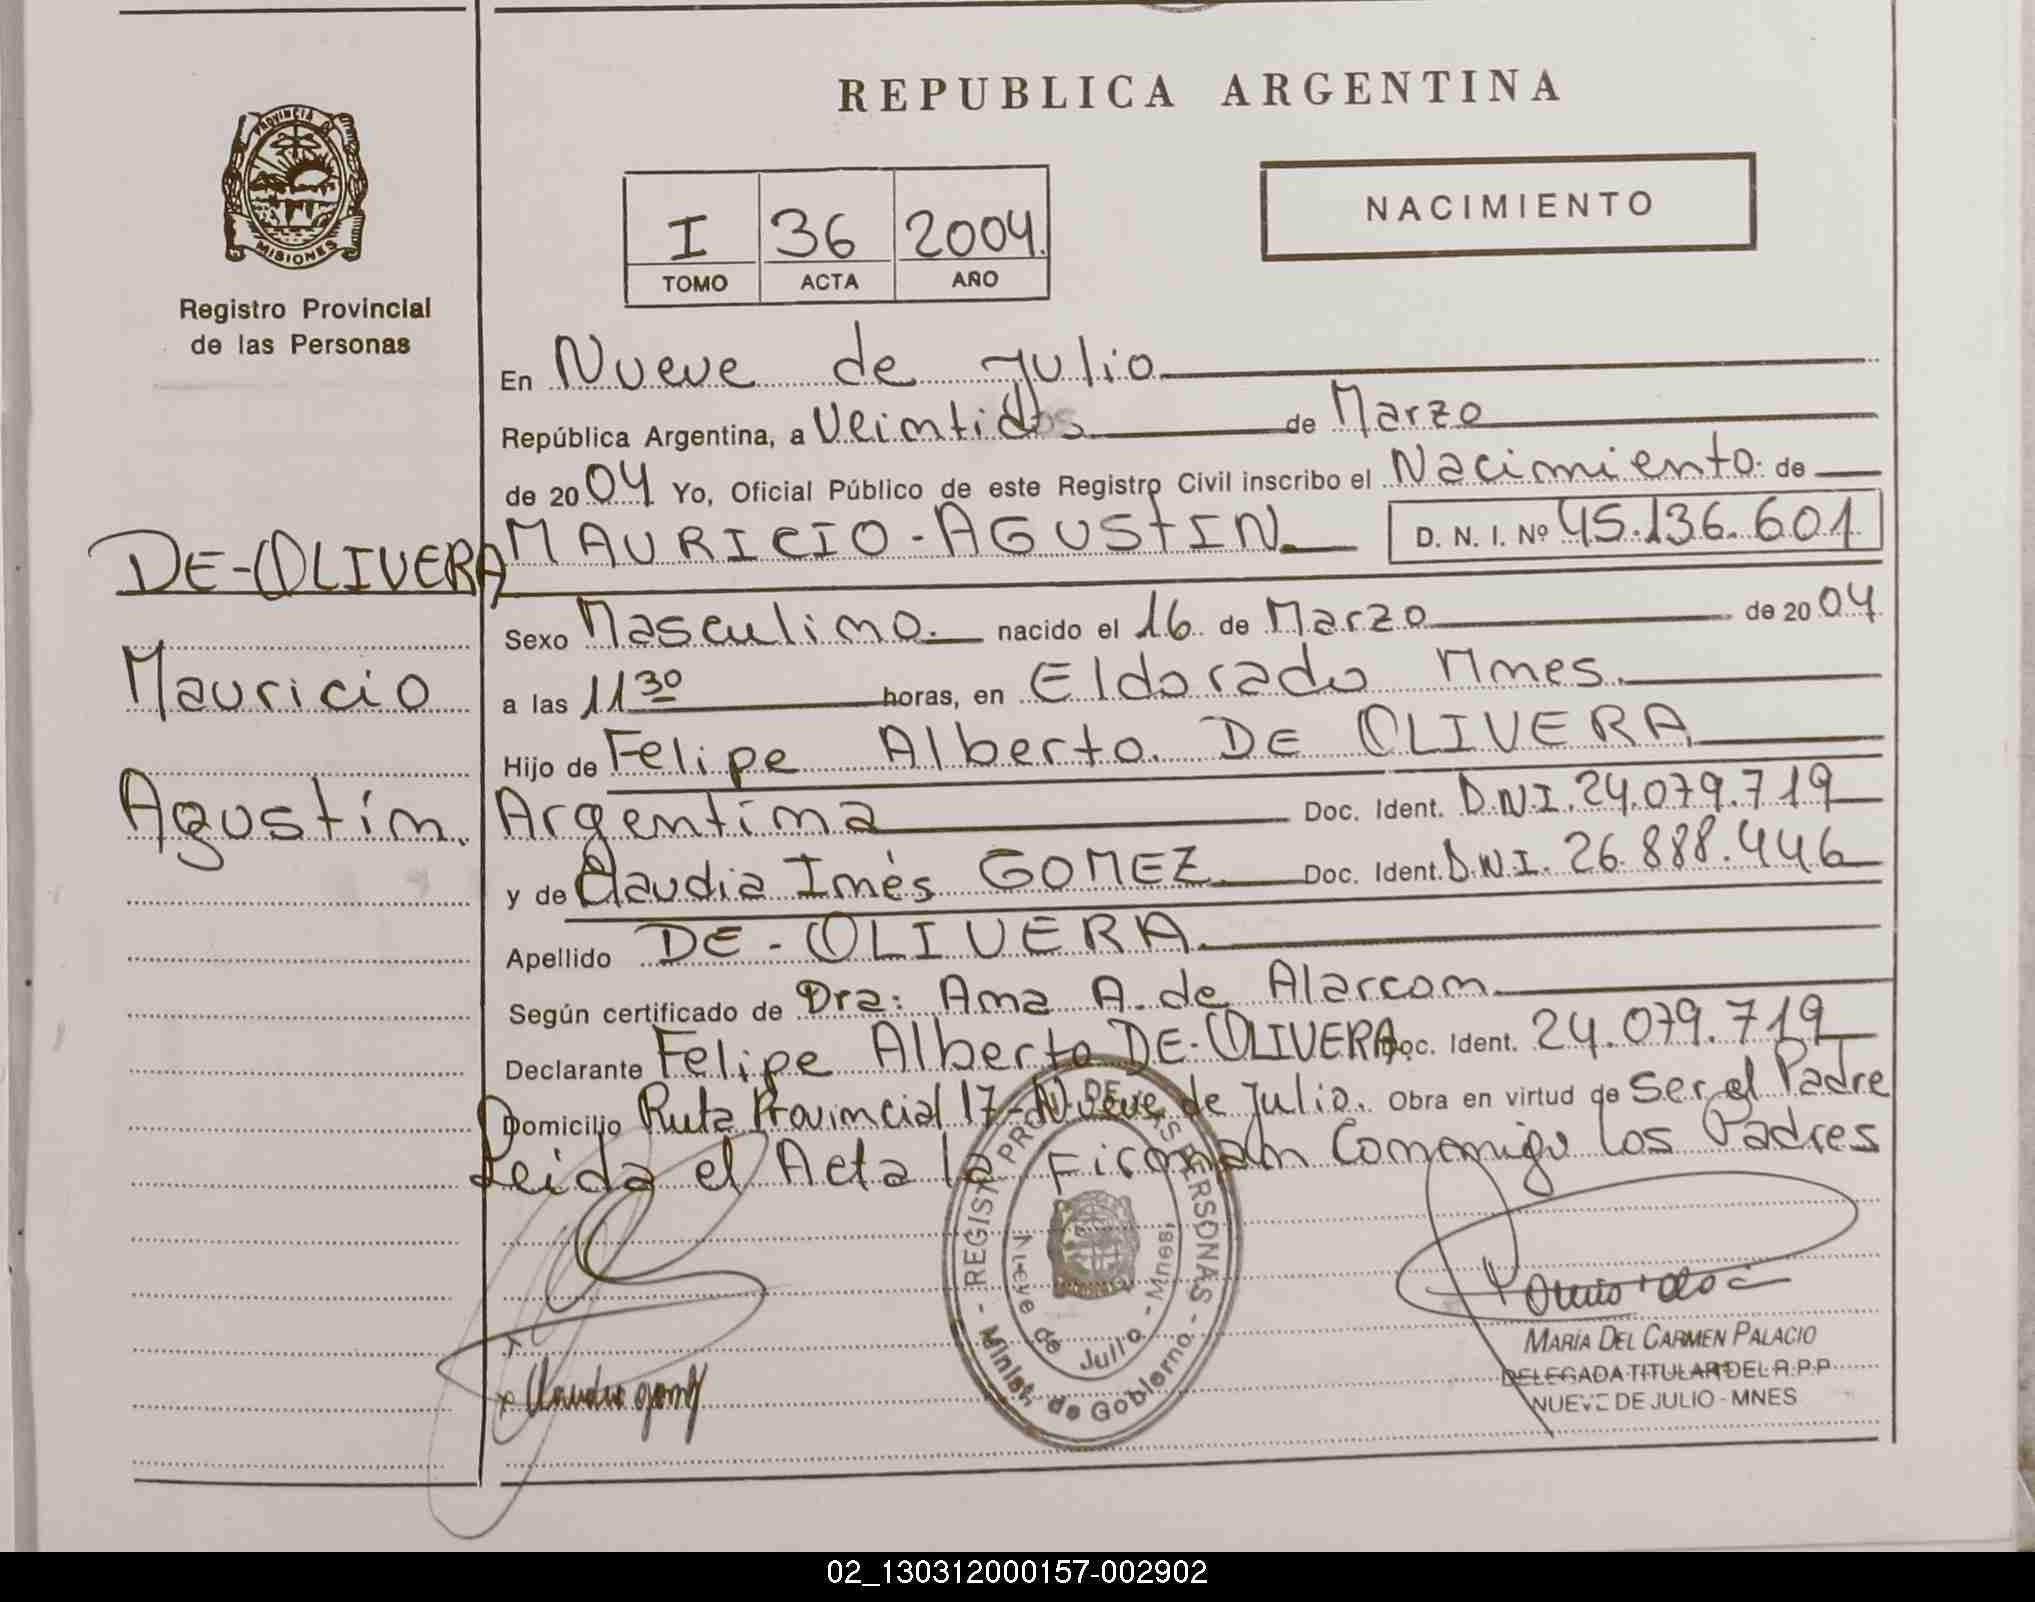 REPUBLICA ARGENTINA
PROVINCIA DE
MISIONES
Registro Provincial
de las Personas
I 36 2004.
TOMO ACTA AÑO
NACIMIENTO
En Nueve de Julio
República Argentina, a Veintidos de Marzo
de 2004 Yo, Oficial Público de este Registro Civil inscribo el Nacimiento de
DE-OLIVERA MAURICIO-AGUSTIN D. N. I. Nº 45.136.601
Mauricio
Agustín.
Sexo Masculino. nacido el 16 de Marzo de 2004
a las 11 30 horas, en Eldorado Mnes.
Hijo de Felipe Alberto. DE OLIVERA
Argentina Doc. Ident. D.N.I. 24.079.719
y de Claudia Inés GOMEZ Doc. Ident. D.N.I. 26.888.446
Apellido DE-OLIVERA
Según certificado de Dra: Ana A. de Alarcon
Declarante Felipe Alberto DE-OLIVERA Doc. Ident. 24.079.719
Domicilio Ruta Provincial 17-Nueve de Julio. Obra en virtud de Ser el Padre
Leida el Acta la Firman Conmigo los Padres
- REGIST. PROV. DE LAS PERSONAS -
Minist. de Gobierno
Nueve de Julio - Mnes.
Claudia gomez
MARÍA DEL CARMEN PALACIO
DELEGADA TITULAR DEL R.P.P.
NUEVE DE JULIO - MNES
02_130312000157-002902